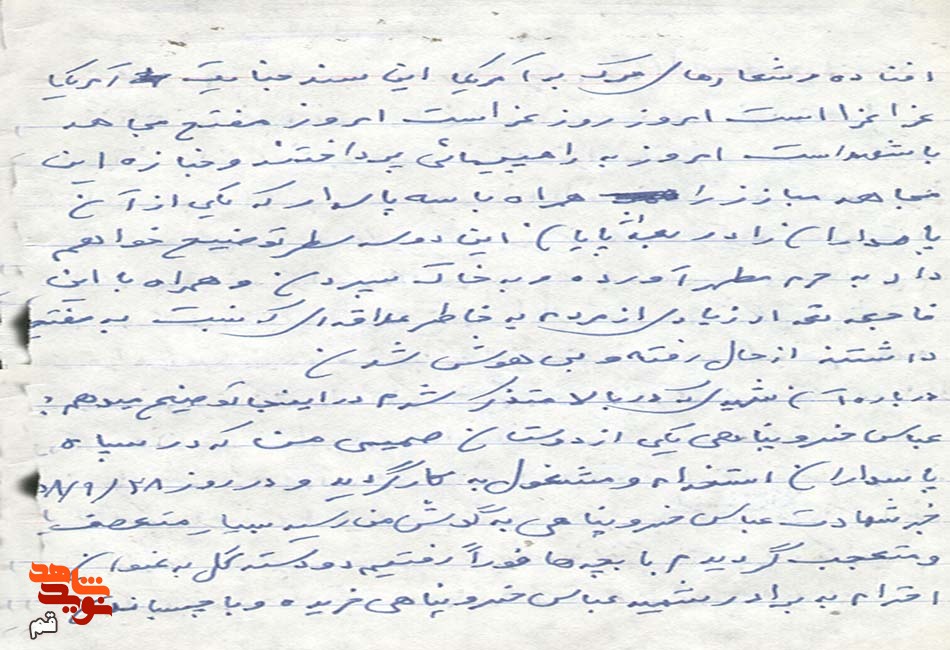 افتاده و شعارهای مرگ بر آمریکا این سند جنایت آمریکا
عزا عزا است امروز روز عزا است امروز مفتح مجاهد
با شهدا است امروز به راهپیمائی پرداختند و جنازه این
مجاهد مبارز را همراه با سه پاسدار که یکی از آن
پاسداران را در بعد پایان این دو سه سطر توضیح خواهم
داد به حرم مطهر آورده و به خاک سپردن و همراه با این
فاجعه تعداد زیادی از مردم به خاطر علاقه‌ای که نسبت به مفتح
داشتند از حال رفته و بی هوش شدن
درباره آن شهیدی که در بالا متذکر شدم در اینجا توضیح میدهم:
عباس خسرو پناهی یکی از دوستان صمیمی من که در سپاه
پاسداران استخدام و مشغول به کار گردید و در روز ۵۸/۹/۲۸
خبر شهادت عباس خسرو پناهی به گوش من رسید بسیار متعصف
و متعجب گردیدم با بچه ها فوراً رفتیم دو دسته گل به عنوان
احترام به برادر شهید عباس خسرو پناهی خریده و با چسباندن
نوید شاهد
قم